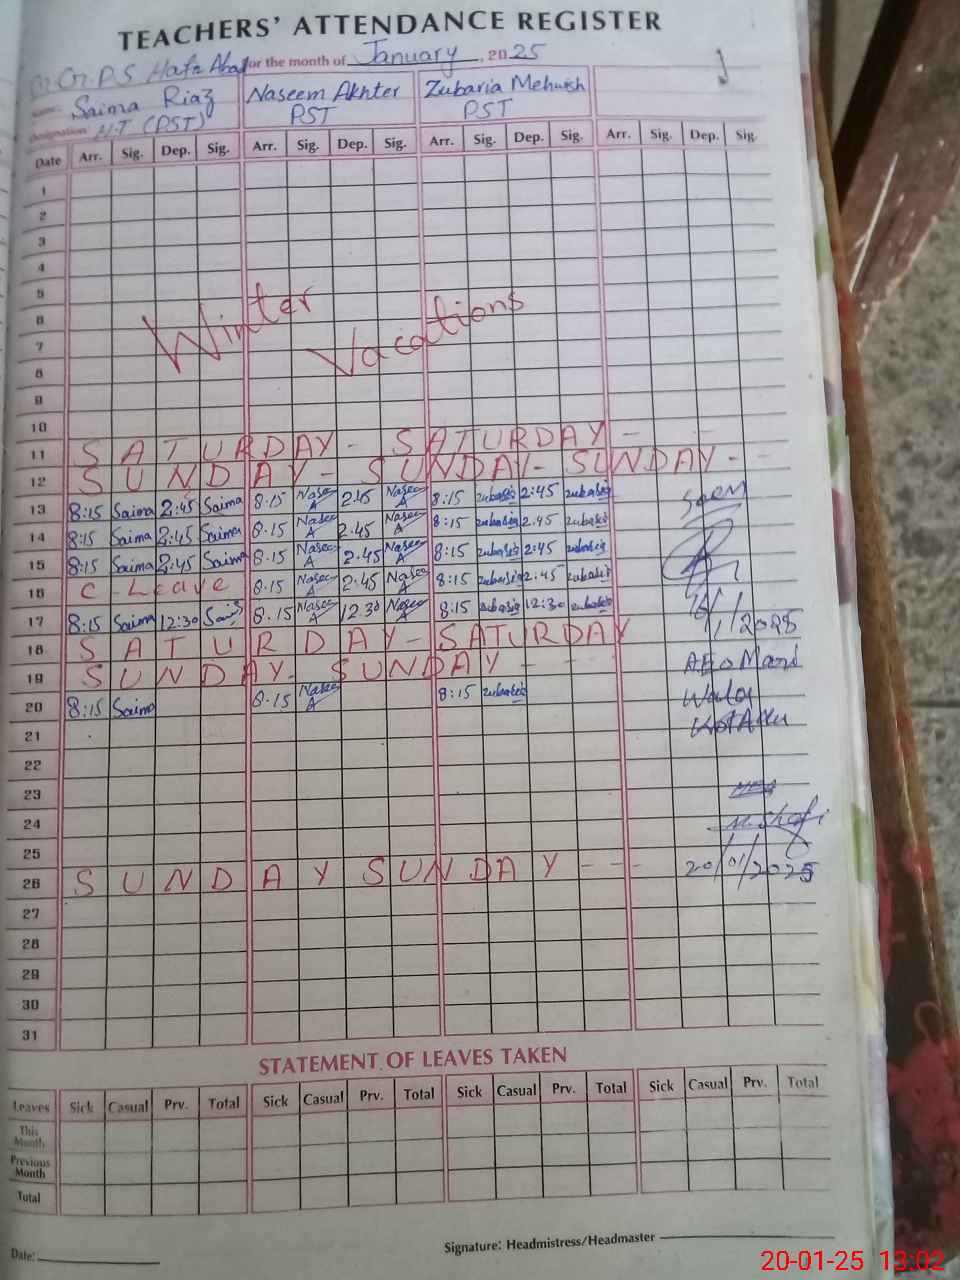 TEACHERS' ATTENDANCE REGISTER
G.P.S for the month of January, 2025
Name: Saima Riaz Naseem Akhter Zubaria Mehwish
Designation: H.T (PST) PST PST
Date Arr. Sig. Dep. Sig. Arr. Sig. Dep. Sig. Arr. Sig. Dep. Sig. Arr. Sig. Dep. Sig.
1
2
3
4
5
6
7
8
9
Winter Vacations
10
11 SATURDAY - SATURDAY - -
12 SUNDAY - SUNDAY - SUNDAY - -
13 8:15 Saima 2:45 Saima 8.15 Naseem A 2.45 Naseem A 8:15 2:45
14 8:15 Saima 2:45 Saima 8.15 Naseem A 2.45 Naseem A 8:15 2:45
15 8:15 Saima 2:45 Saima 8.15 Naseem A 2.45 Naseem A 8:15 2:45
16 C - Leave 8.15 Naseem A 2.45 Naseem A 8:15 2:45
17 8:15 Saima 12:30 Saima 8.15 Naseem A 12.30 Naseem A 8:15 12:30
16/1/2025
18 SATURDAY - SATURDAY
19 SUNDAY - SUNDAY - - -
AEO
20 8:15 Saima 8.15 Naseem A 8:15
21
22
23
24
25
26 SUNDAY SUNDAY - - -
20/01/2025
27
28
29
30
31
STATEMENT OF LEAVES TAKEN
Leaves Sick Casual Prv. Total Sick Casual Prv. Total Sick Casual Prv. Total Sick Casual Prv. Total
This Month
Previous Month
Total
Date: Signature: Headmistress/Headmaster
20-01-25 13:02